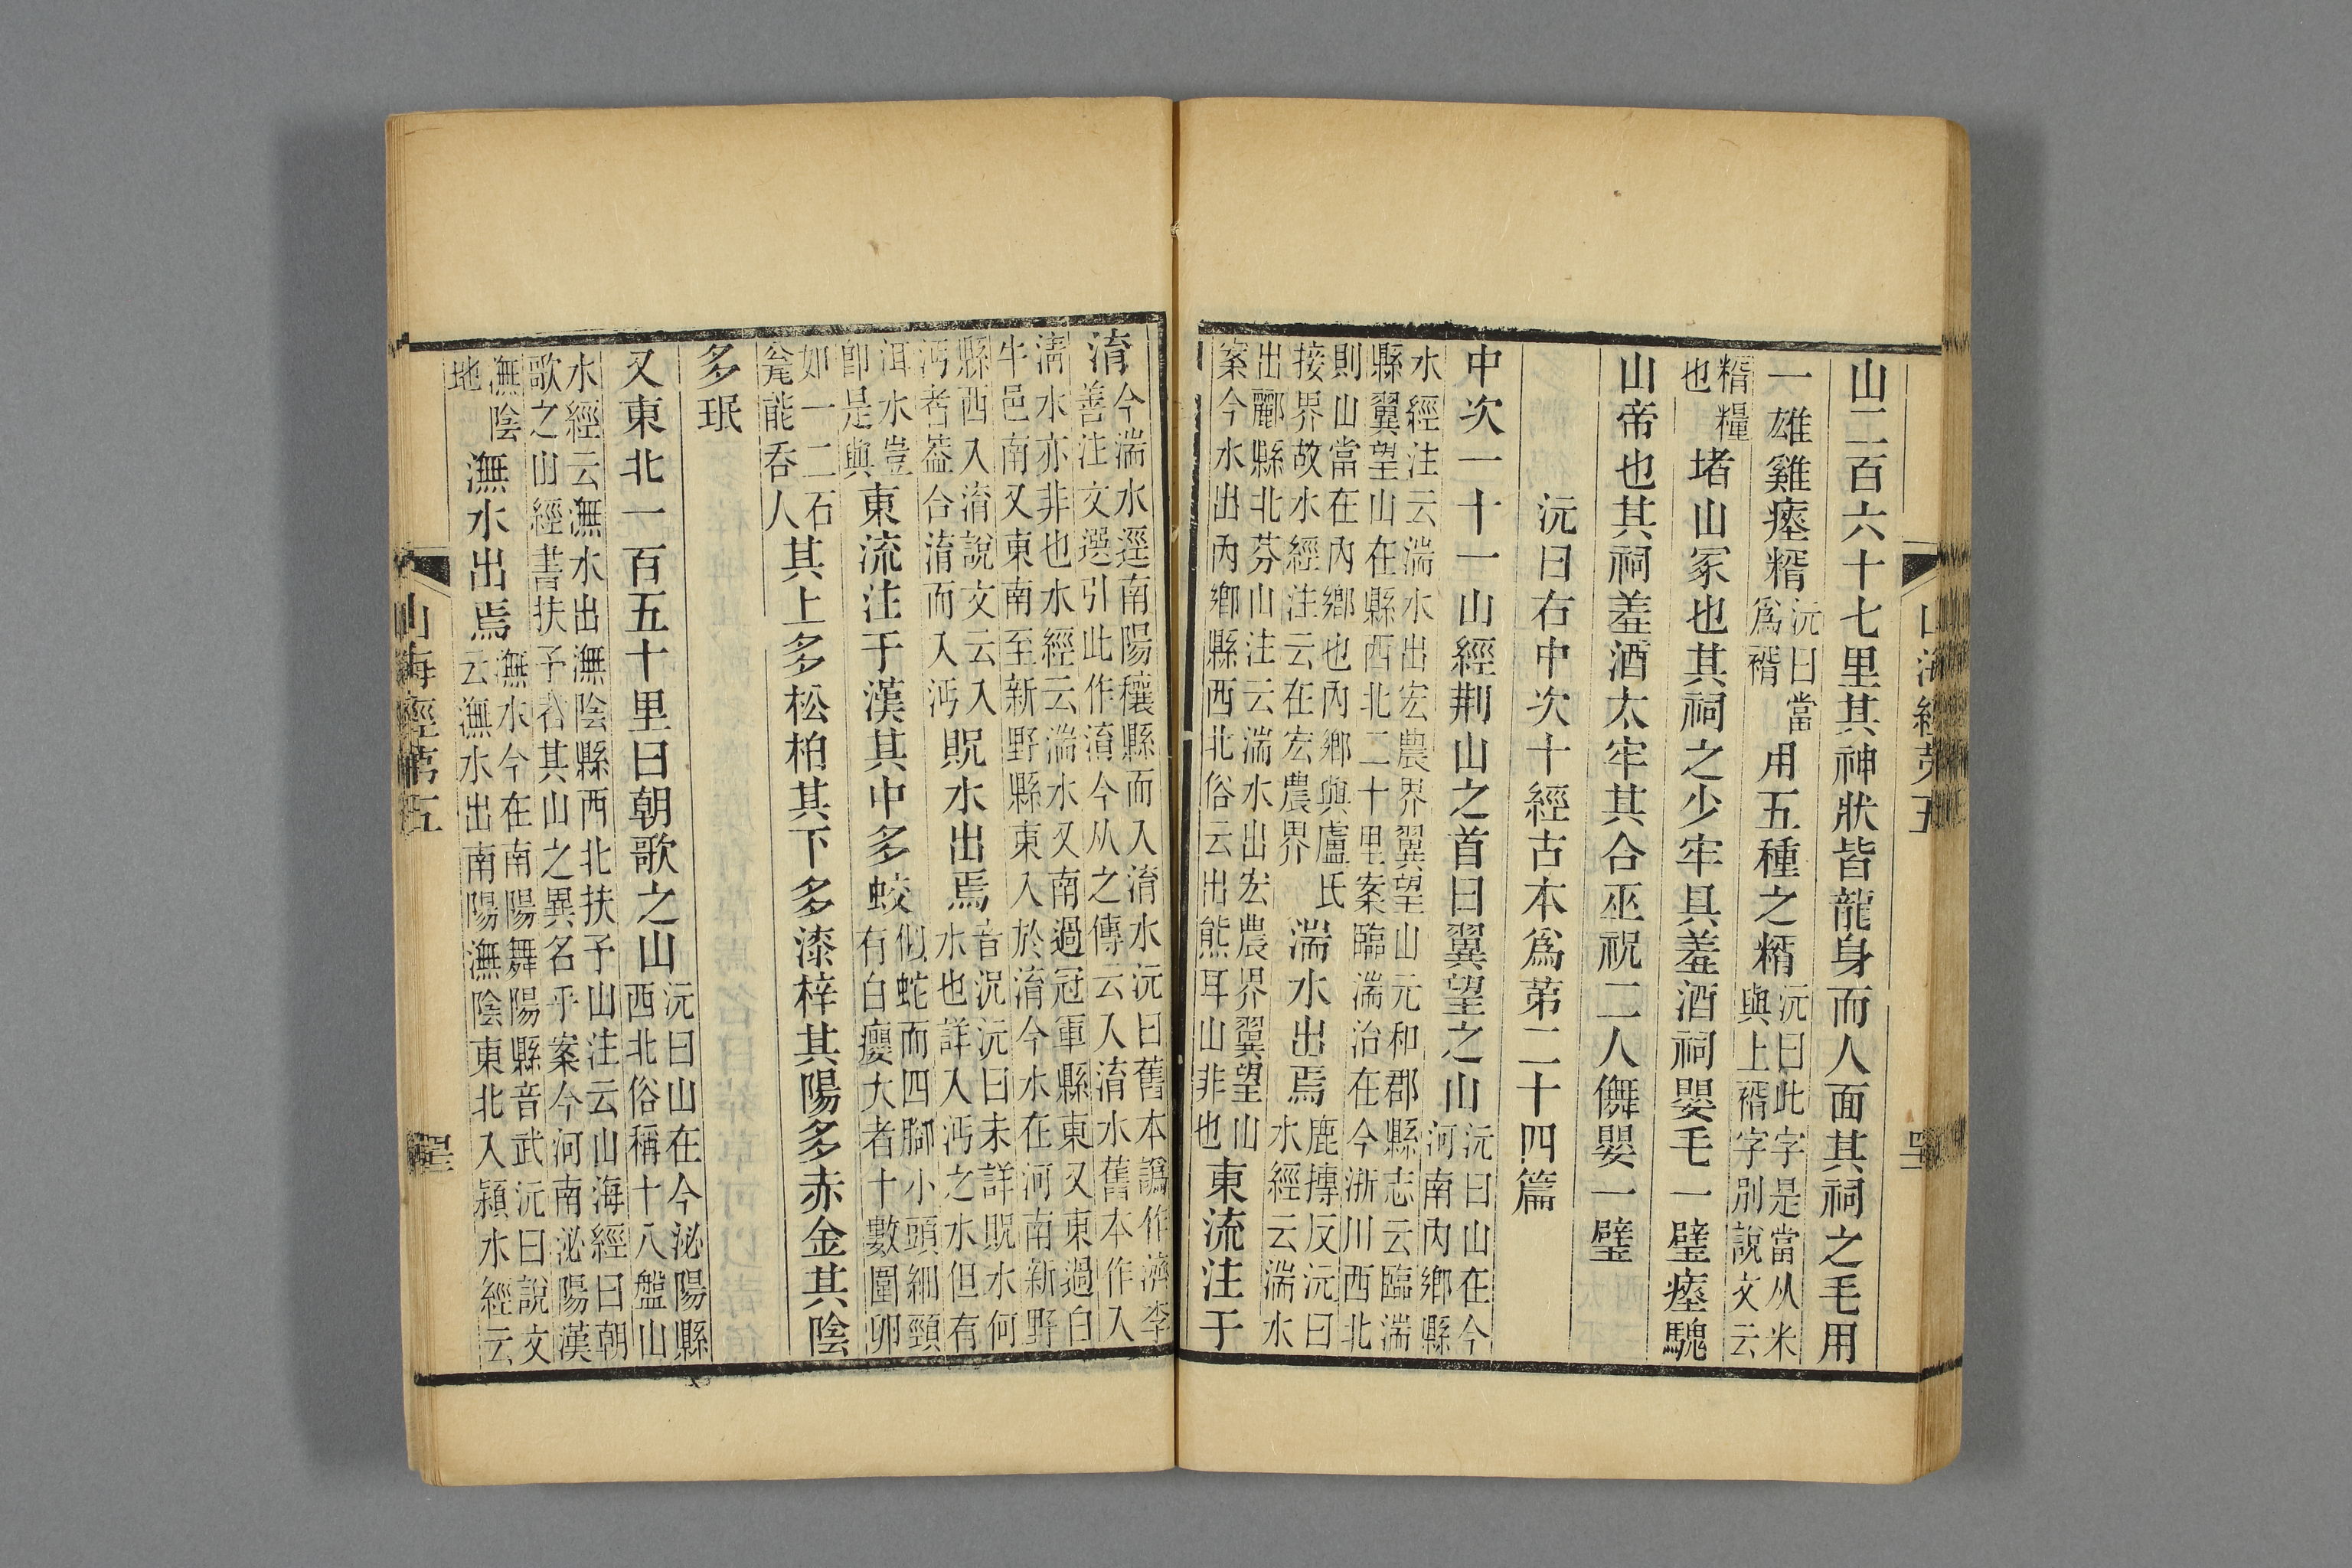 山海經第五
山二百六十七里其神狀皆龍身而人面其祠之毛用
一雄雞瘞糈沅曰當爲稰用五種之糈沅曰此字是當从米與上稰字別說文云
糈糧也堵山冢也其祠之少牢具羞酒祠嬰毛一璧瘞騩
山帝也其祠羞酒太牢其合巫祝二人儛嬰一璧
沅曰右中次十經古本爲第二十四篇
中次一十一山經荆山之首曰翼望之山沅曰山在今河南內鄉縣
水經注云湍水出宏農界翼望山元和郡縣志云臨湍縣翼望山在縣西北二十里案臨湍治在今淅川西北
則山當在內鄉也內鄉與盧氏接界故水經注云在宏農界湍水出焉鹿摶反沅曰水經云湍水
出酈縣北芬山注云湍水出宏農界翼望山案今水出內鄉縣西北俗云出熊耳山非也東流注于
淯今湍水逕南陽穰縣而入淯水沅曰舊本譌作濟李善注文選引此作淯今从之傳云入淯水舊本作入
淸水亦非也水經云湍水又南過冠軍縣東又東過白牛邑南又東南至新野縣東入於淯今水在河南新野
縣西入淯說文云入沔者葢合淯而入沔貺水出焉音況沅曰未詳貺水何水也詳入沔之水但有
洱水豈卽是與東流注于漢其中多蛟似蛇而四腳小頭細頸有白癭大者十數圍卵
如一二石瓮能吞人其上多松柏其下多漆梓其陽多赤金其陰
多珉
又東北一百五十里曰朝歌之山沅曰山在今泌陽縣西北俗稱十八盤山
水經云潕水出潕陰縣西北扶予山注云山海經曰朝歌之山經書扶予者其山之異名乎案今河南泌陽漢
潕陰地潕水出焉潕水今在南陽舞陽縣音武沅曰說文云潕水出南陽潕陰東北入潁水經云
山海經第五